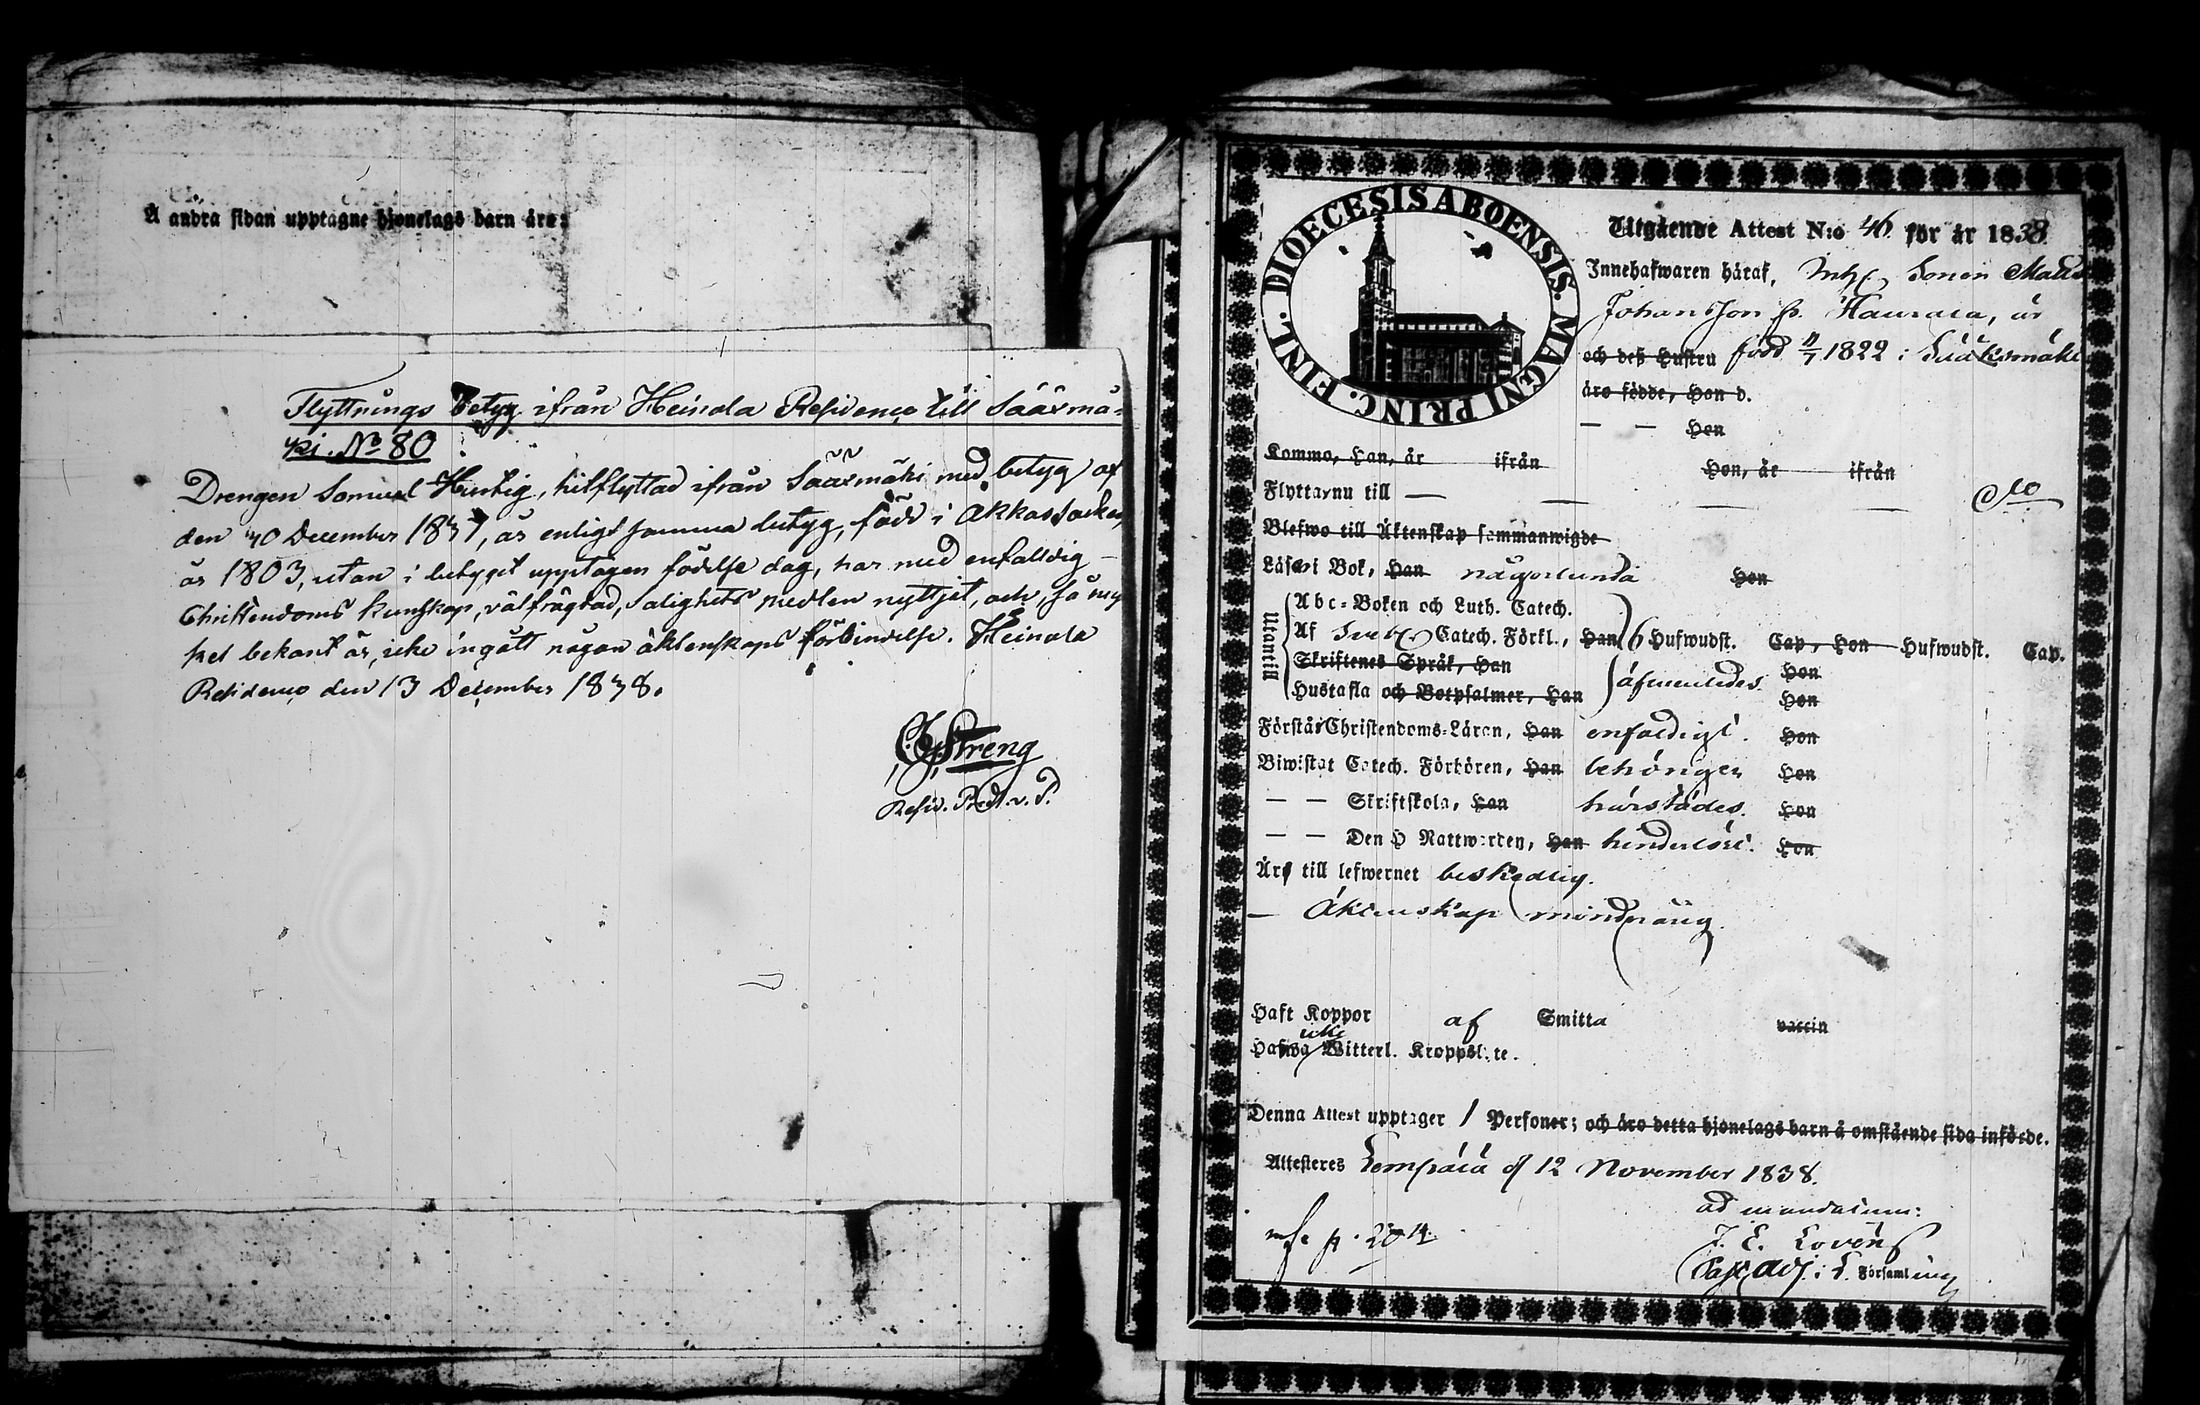 Å andra sidan upptagne hjonelags barn äro:
Flyttnings Betyg ifrån Heinola Residence till Sääxmä-
ki. No 80
Drengen Samuel hitflyttad ifrån Sääxmäki med betyg af
den 30 December 1837, är enligt samma betyg, född i Akkas Socken,
år 1803, utan i betyget upptagen födelse dag, har med enfalldig
Christendoms kunskap, välfrägdad, salighets medlen nyttjat, och, så my-
ket bekant är, icke ingått någon äktenskaps förbindelse. Heinola
Residence den 13 December 1838.
Streng
Resid. Pred. v. P.
DIOECESIS ABOENSIS. MAGNI PRINC. FINL.
Utgående Attest N:o 46 för år 1838
Innehafwaren häraf, Sonen Matts
Johansson fr. är
och deß Hustru född 1822 i Sääksmäki
äro födde, Han d.
— — Hon
Kommo, Han, år ifrån Hon, år ifrån
Flyttar nu till — — — —
Blefwo till Äktenskap sammanwigde
Läser i Bok, Han någorlunda Hon
Utantill
Abc-Boken och Luth. Catech.
Af Catech. Förkl., Han 6 Hufwudst. Cap, Hon Hufwudst. Cap.
Skriftenes Språk, Han Hon
Hustafla och Botpsalmer, Han äfwenledes. Hon
Förstår Christendoms-Läran, Han enfaldigt. Hon
Biwistat Catech. Förhören, Han behörigen Hon
— — Skriftskola, Han härstädes. Hon
— — Den H Nattwarden, Han hinderlöst. Hon
Är till lefwernet beskedlig.
— Äktenskap minderårig.
Haft Koppor af Smitta vaccin
icke
Hafwa Witterl. Kroppslyte.
Denna Attest upptager 1 Personer; och äro detta hjonelags barn å omstående sida införde.
Attesteres Lempälä d 12 November 1838.
ad mandatum:
J. E. Lovén
Past. Adj. i L. Församling
p. 204